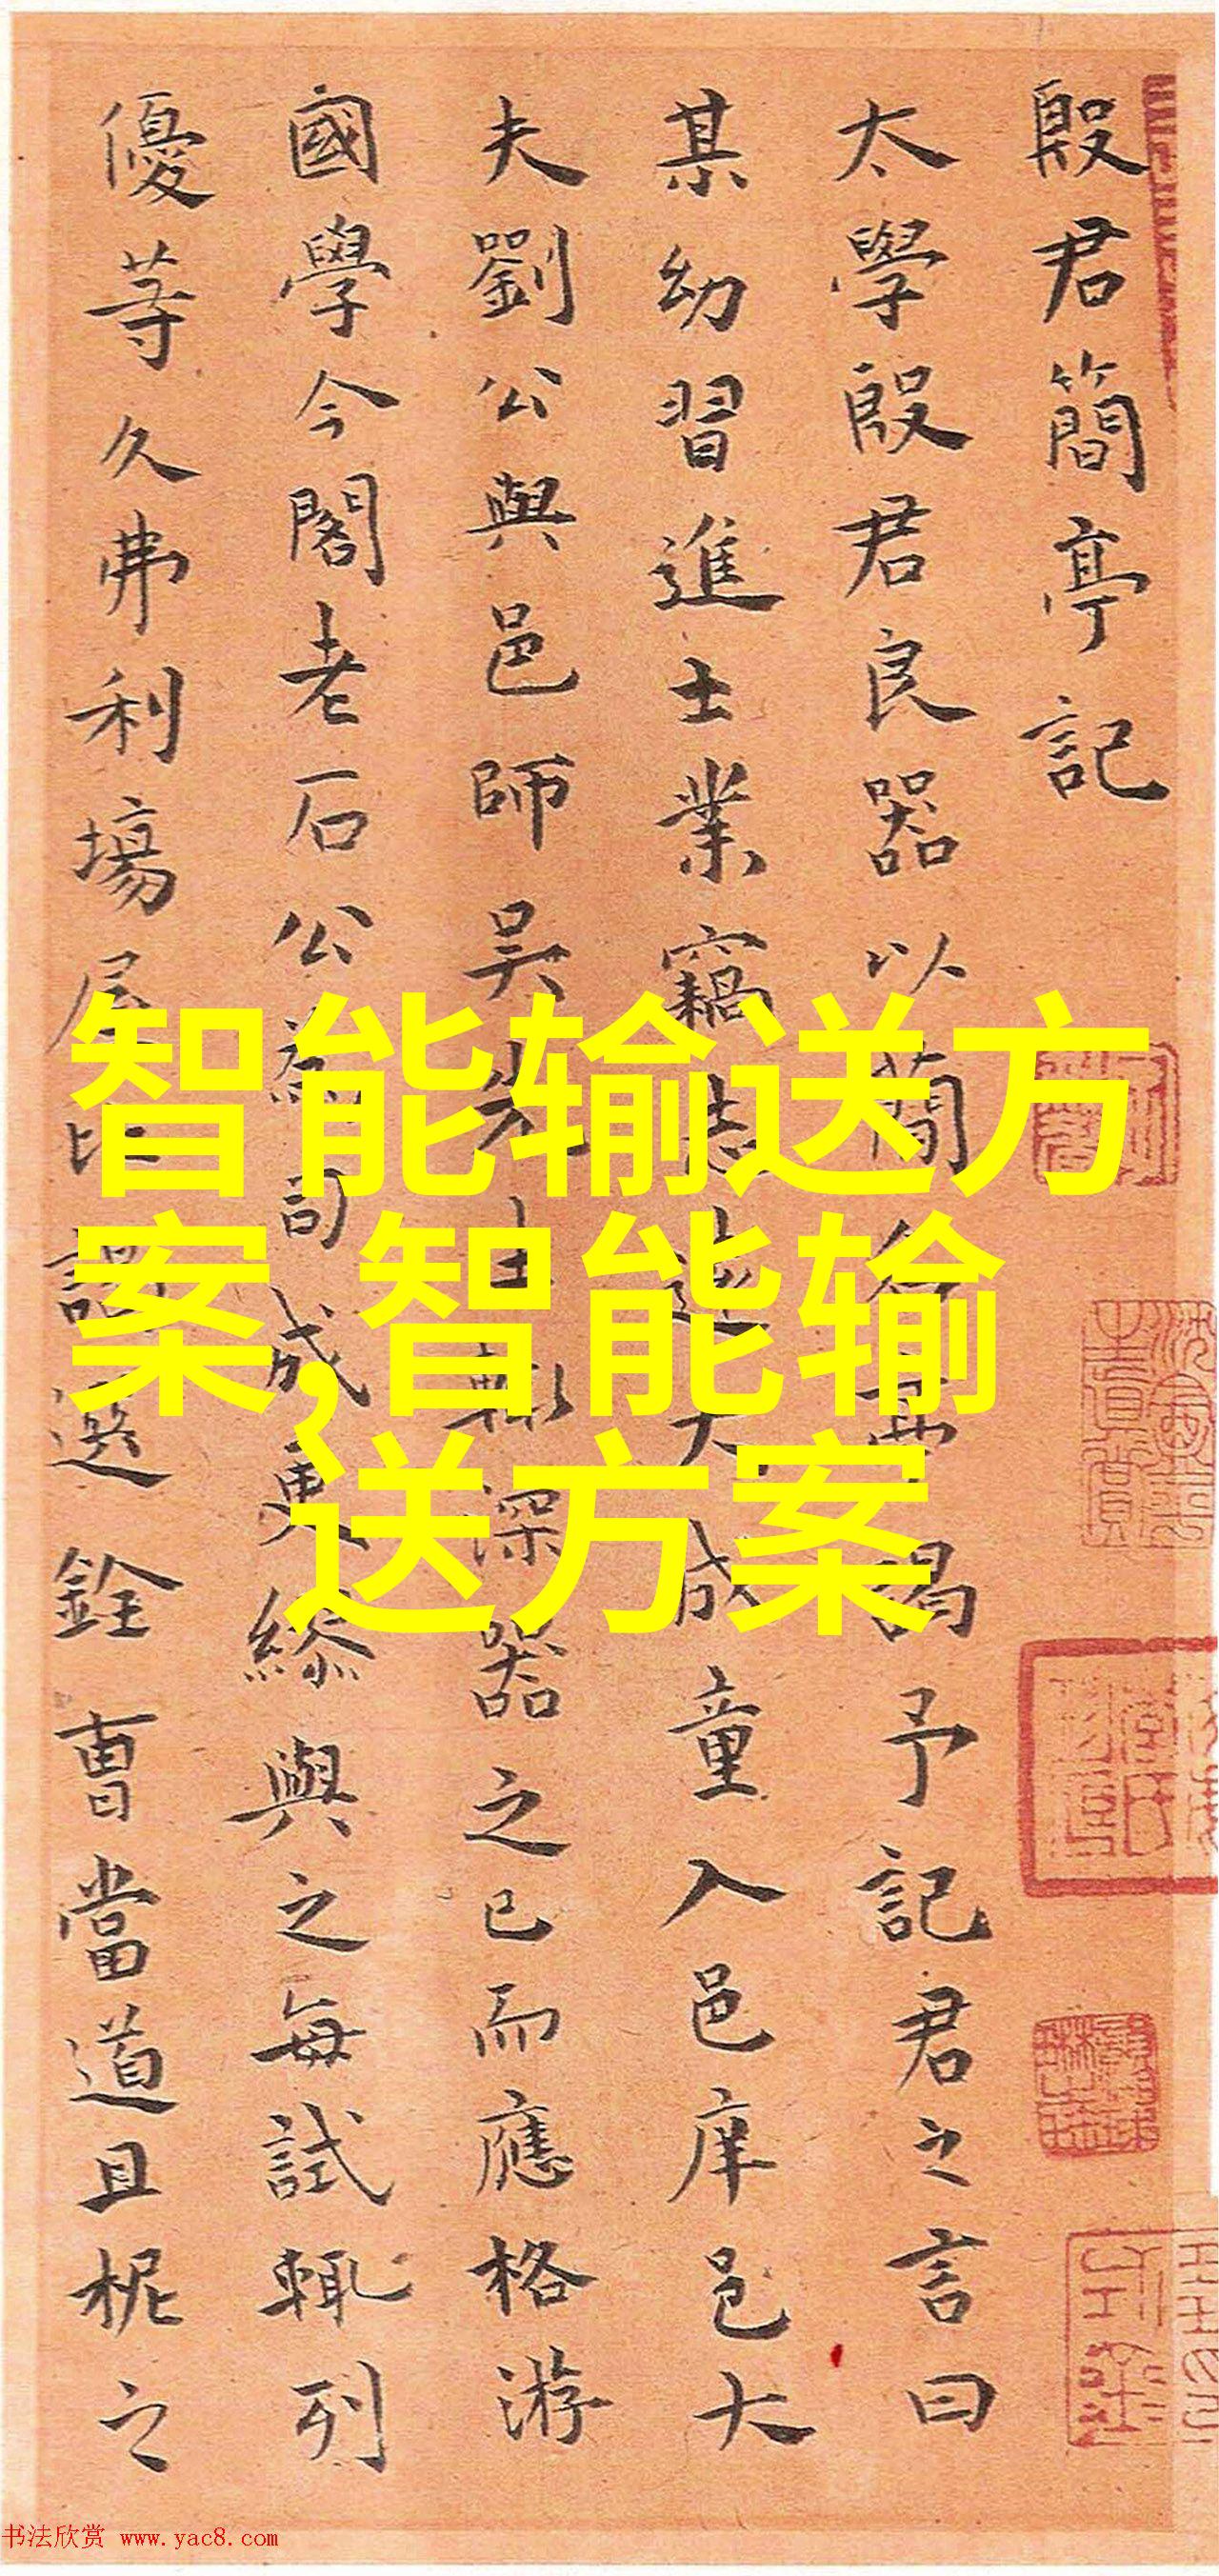 殷君簡亭記
太學殷君良器以簡 謁予記君之言曰
某幼習進士業竊 志 大成童入邑庠邑大
夫劉公與邑師吳先 士 深器之已而應格游
國學今閣老石公為司成更 與之每試輒列
優等久弗利場屋比 選銓曹當道且柅之
智能输送方
案,智能输
送方案
书法欣赏 www.yac8.com